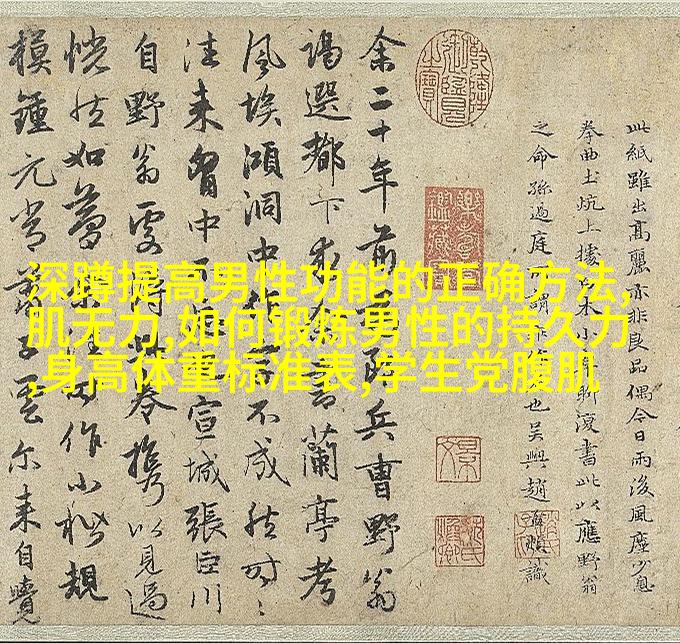 此紙雖出高麗亦非良品偶今日雨後風塵少息
拳曲土炕上據木小聊復書此以應野翁
之命孫過庭謂也吳興趙孟頫識
余二十年前兵曹野翁
謁選都下求余書蘭亭考
風埃澒洞中不成然時
往来胷中宣城張臣川
自野翁携以見過
恍然如夢作小楷規
模鍾元常子雲尔来自覺
深蹲提高男性功能的正确方法,
肌无力,如何锻炼男性的持久力
,身高体重标准表,学生党腹肌